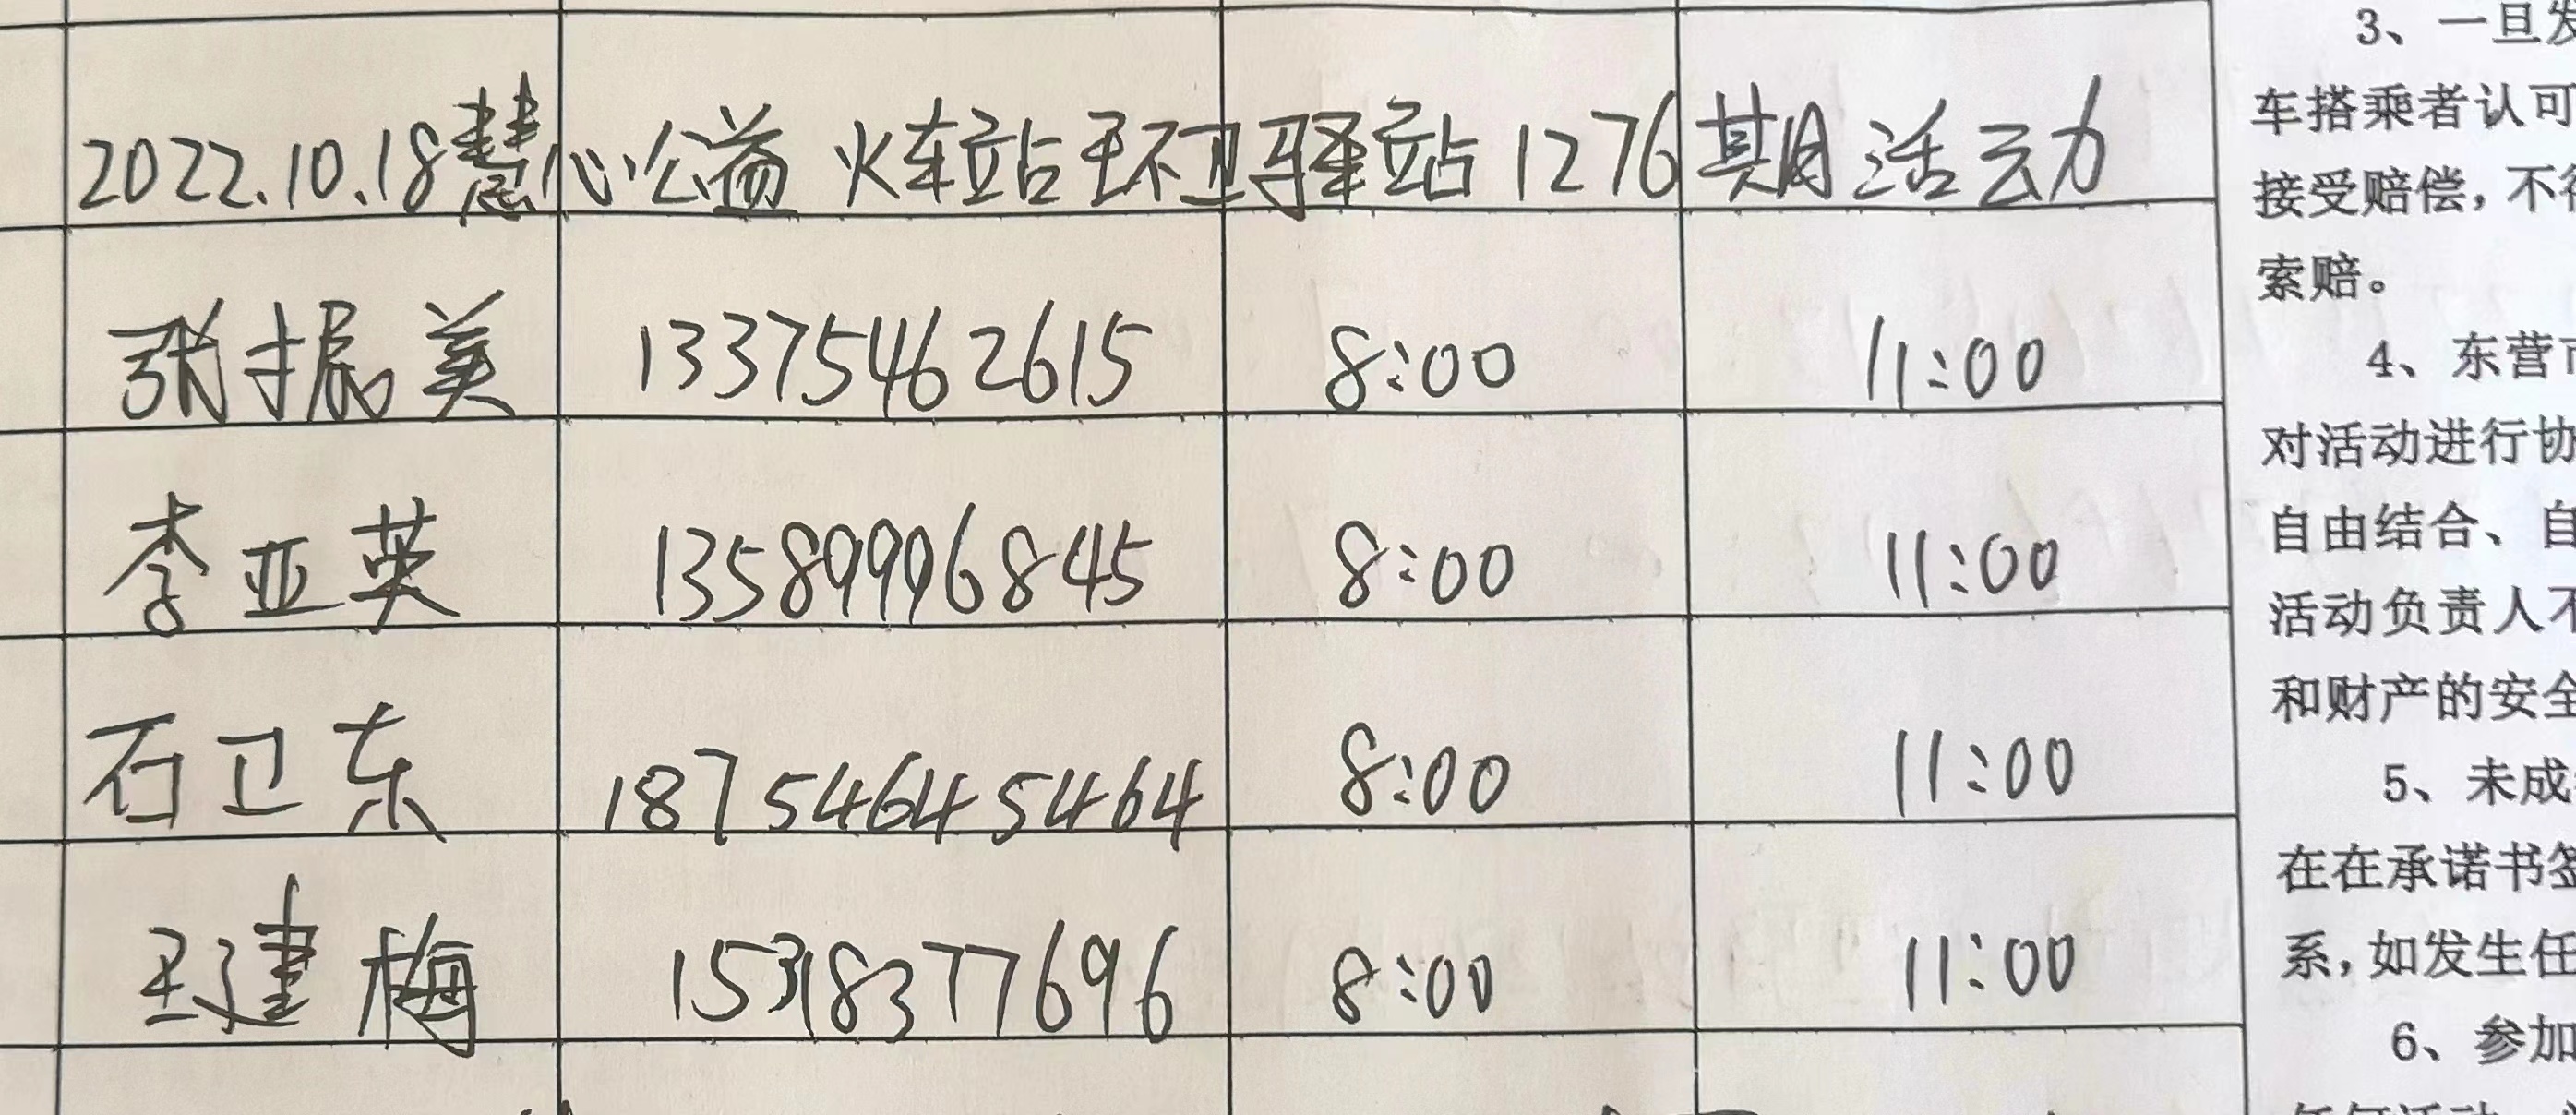 2022.10.18慧心公益 火车站环卫驿站1276期活动
张振美 13375462615 8:00 11:00
李亚英 13589996845 8:00 11:00
石卫东 18754645464 8:00 11:00
王建梅 15318377696 8:00 11:00
3、一旦发
车搭乘者认可
接受赔偿，不得
索赔。
4、东营市
对活动进行协
自由结合、自
活动负责人不
和财产的安全
5、未成
在在承诺书签
系，如发生任
6、参加